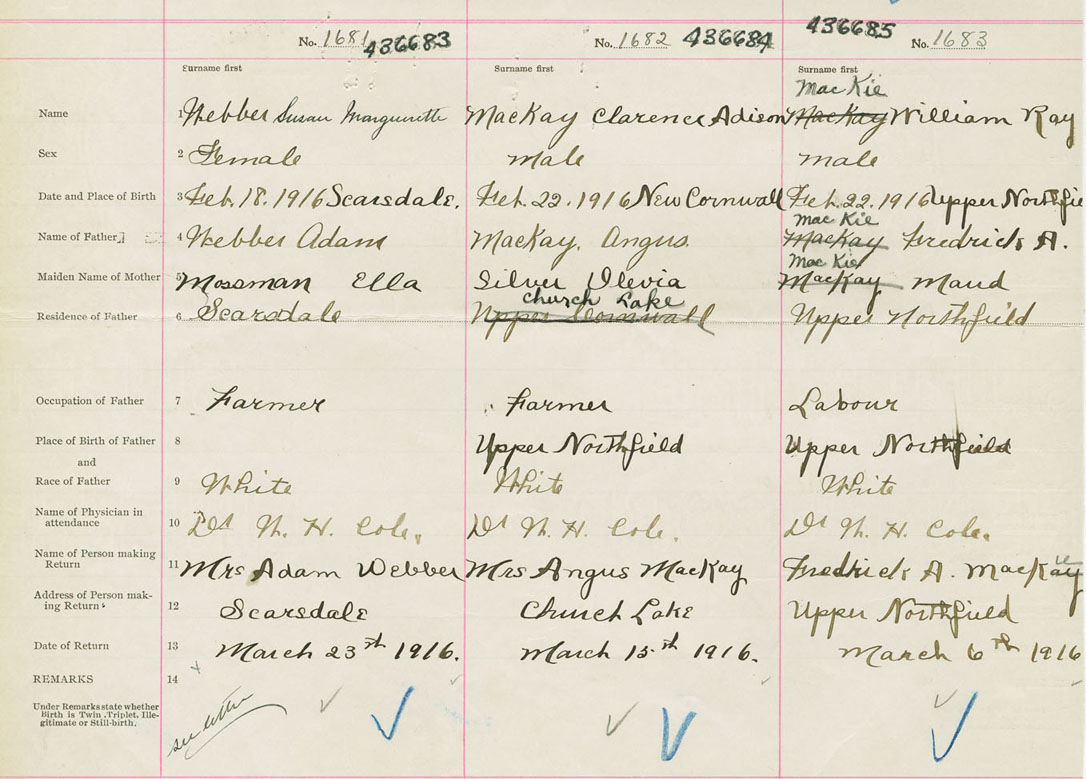 No. 1681 436683 No. 1682 436684 436685 No. 1683
Surname first Surname first Surname first
Mac Kie
Name 1 Webber Susan Marguerette MacKay Clarence Adison MacKay William Ray
Sex 2 Female male male
Date and Place of Birth 3 Feb. 18. 1916 Scarsdale. Feb. 22. 1916 New Cornwall Feb. 22. 1916 Upper Northfie
Mac Kie
Name of Father 4 Webber Adam MacKay, Angus MacKay Fredrick A.
Mac Kie
Maiden Name of Mother 5 Mossman Ella Silver Olevia MacKay Maud
Church Lake
Residence of Father 6 Scarsdale Upper Cornwall Upper Northfield
Occupation of Father 7 Farmer Farmer Labour
Place of Birth of Father 8 Upper Northfield Upper Northfield
and
Race of Father 9 White White White
Name of Physician in
attendance 10 Dr W. H. Cole. Dr W. H. Cole. Dr W. H. Cole.
Name of Person making
Return 11 Mrs Adam Webber Mrs Angus MacKay Fredrick A. MacKay
Address of Person mak-
ing Return 12 Scarsdale Church Lake Upper Northfield
Date of Return 13 March 23rd 1916. March 15th 1916. March 6th 1916
REMARKS 14
Under Remarks state whether
Birth is Twin, Triplet, Ille-
gitimate or Still-birth.
see letter